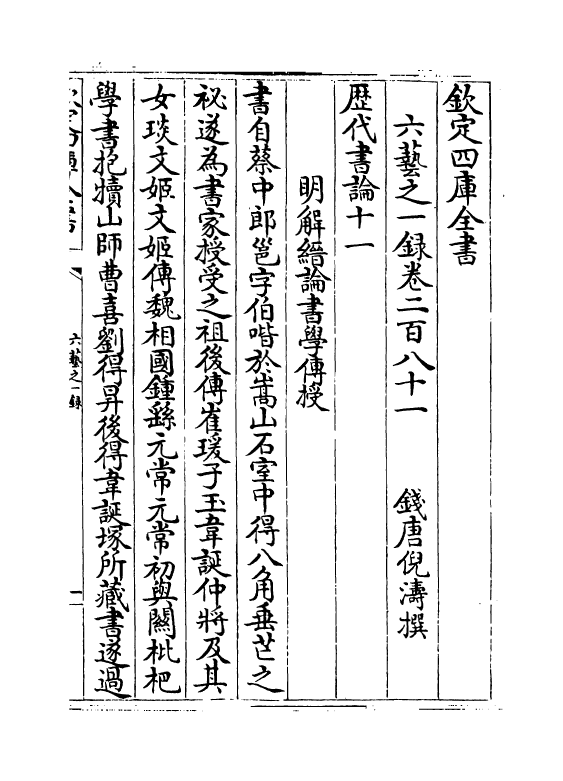 欽定四庫全書
六藝之一錄卷二百八十一　錢唐倪濤撰
歷代書論十一
明解縉論書學傳授
書自蔡中郎邕字伯喈於嵩山石室中得八角垂芒之
祕遂為書家授受之祖後傳崔瑗子玉韋誕仲將及其
女琰文姬文姬傳魏相國鍾繇元常元常初與關枇杷
學書抱犢山師曹喜劉得昇後得韋誕塚所藏書遂過
六藝之一錄